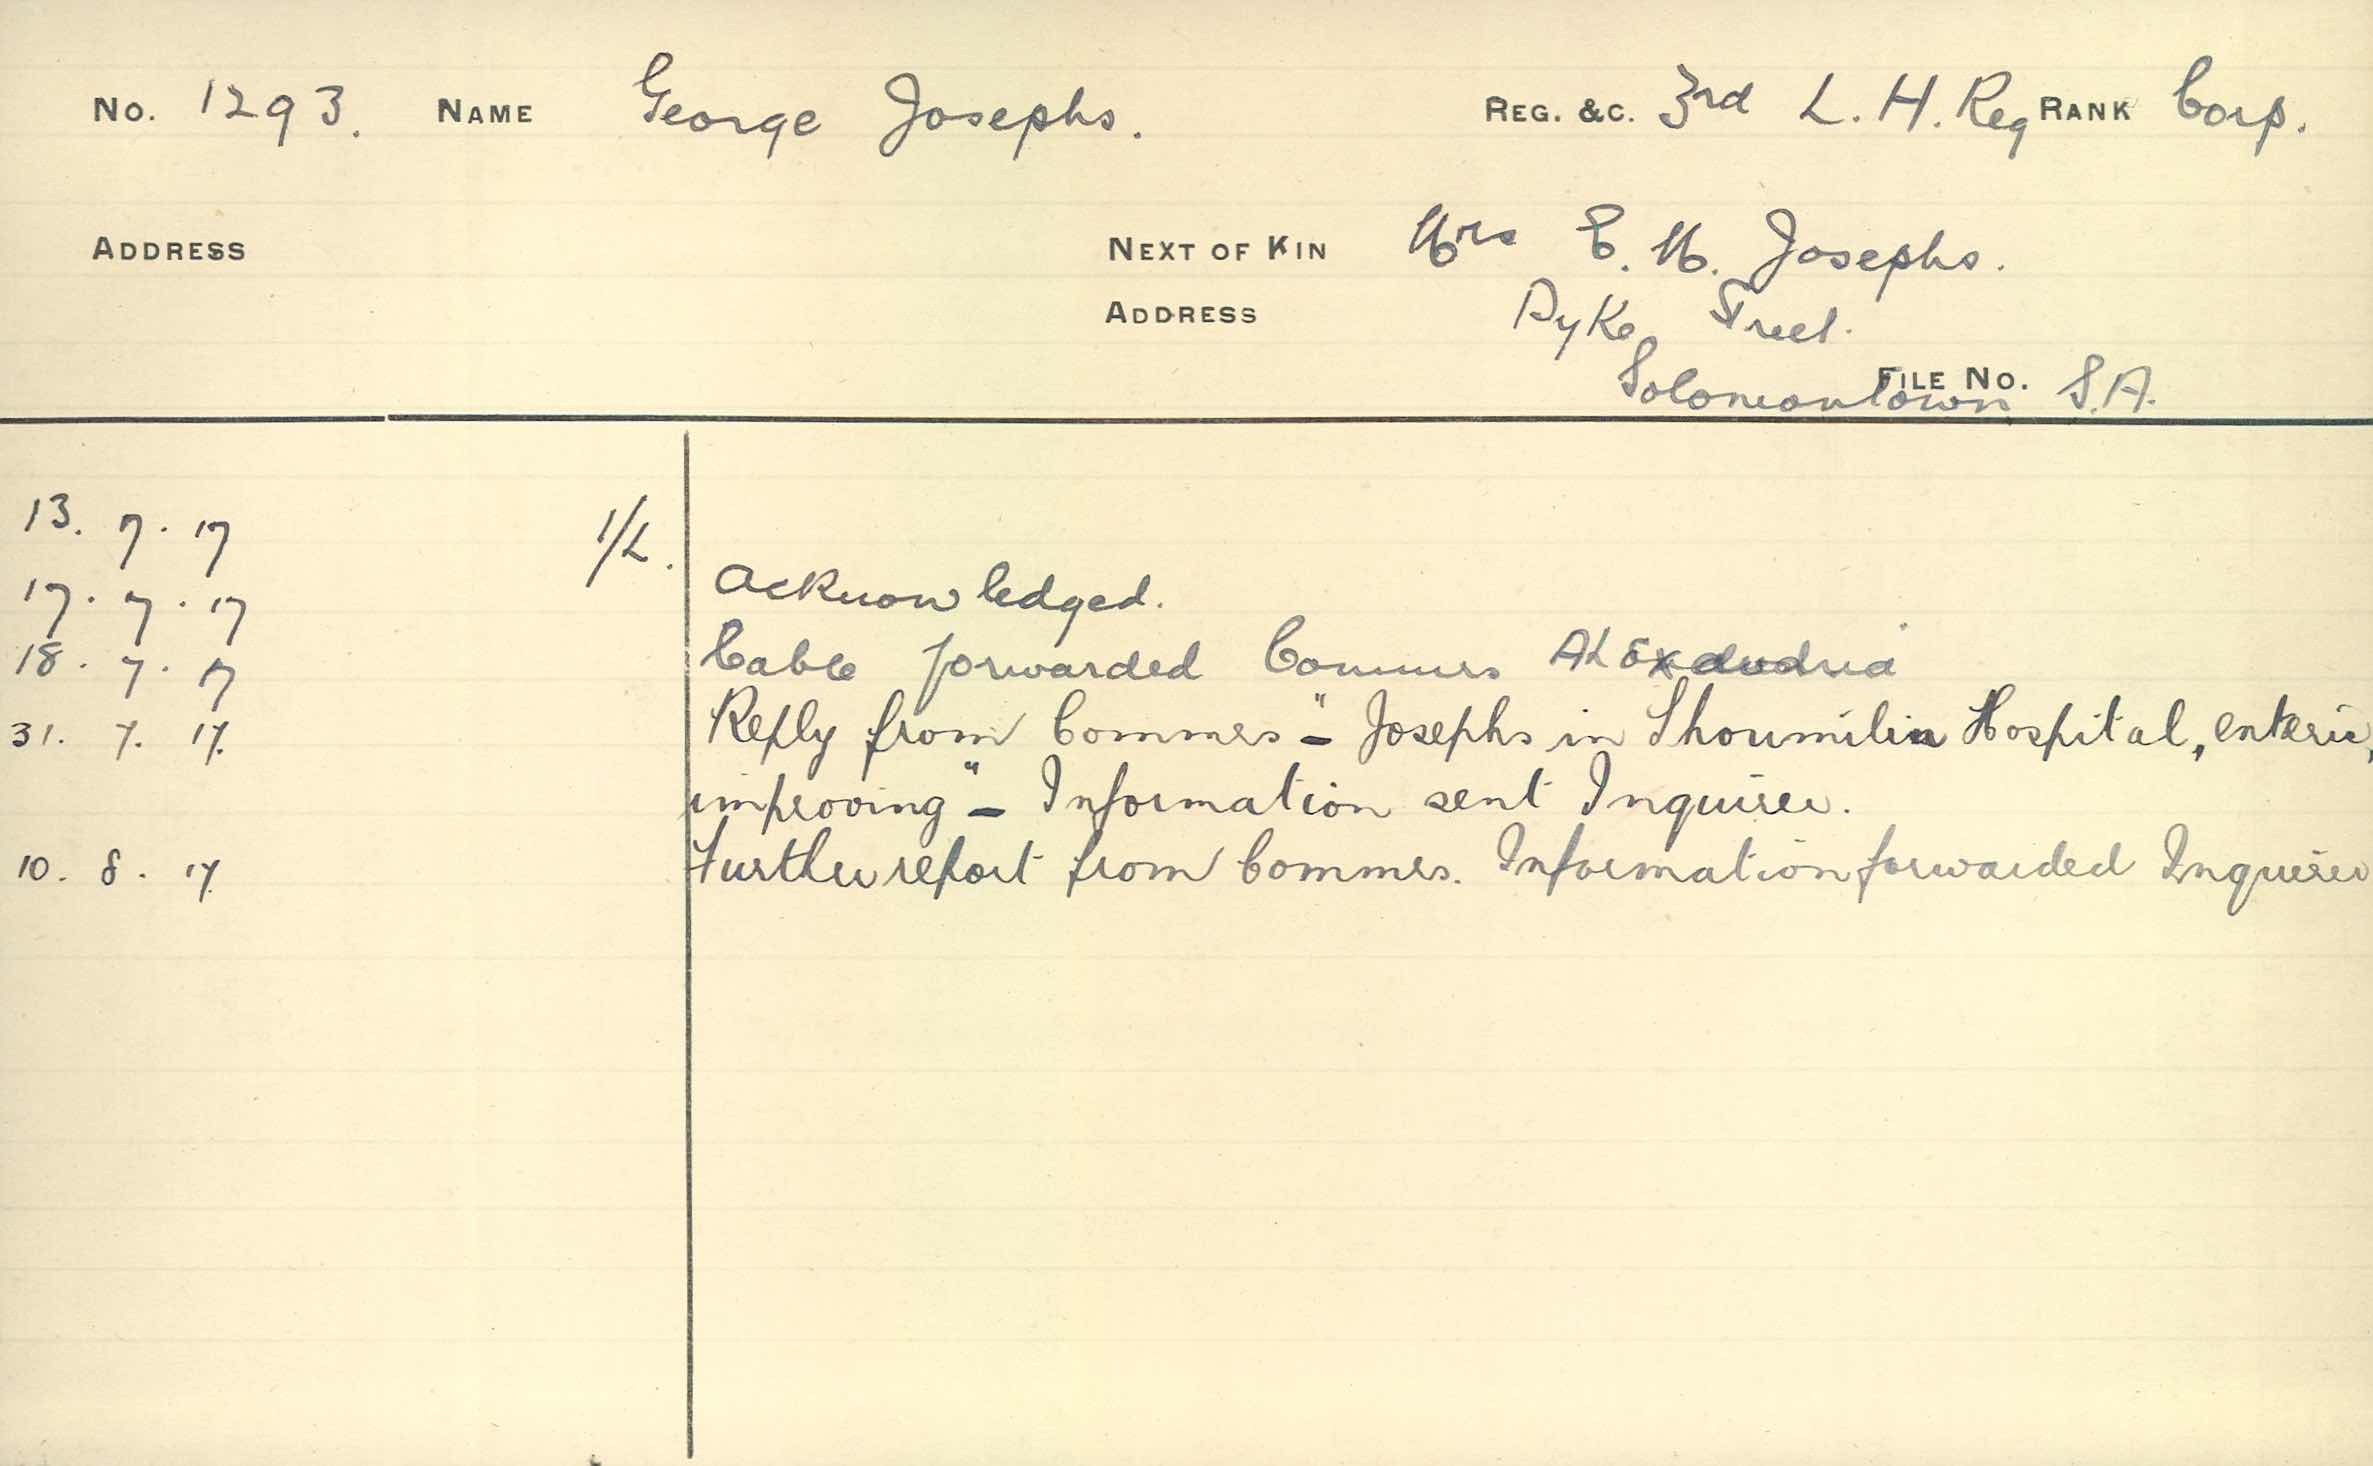 No. 1293. NAME George Josephs. REG. &C. 3rd L. H. Reg RANK Corp.
ADDRESS NEXT OF KIN Mrs E. M. Josephs.
ADDRESS Dyke Street.
Solomontown FILE NO. S.A.
13. 7. 17 1/L.
17. 7. 17 Acknowledged.
18. 7. 17 Cable forwarded Commrs Alexandria
31. 7. 17. Reply from Commrs - "Josephs in Choumilin Hospital, enteric,
improving" - Information sent Inquirer.
10. 8. 17. Further report from Commrs. Information forwarded Inquirer